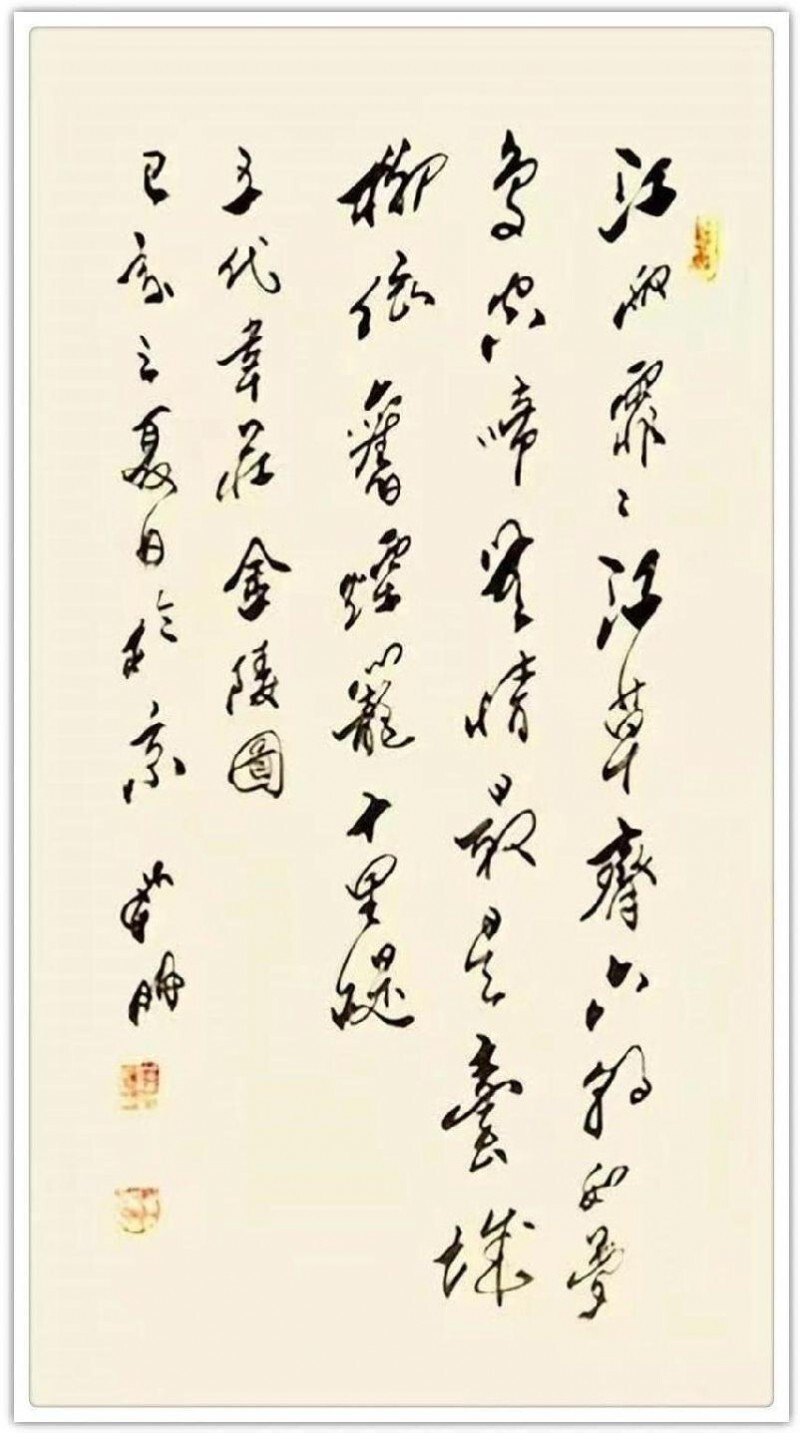 江雨霏〻江草齊六朝如夢
鳥空啼無情最是臺城
柳依舊煙籠十里堤
五代韋莊金陵圖
己亥之夏日於京